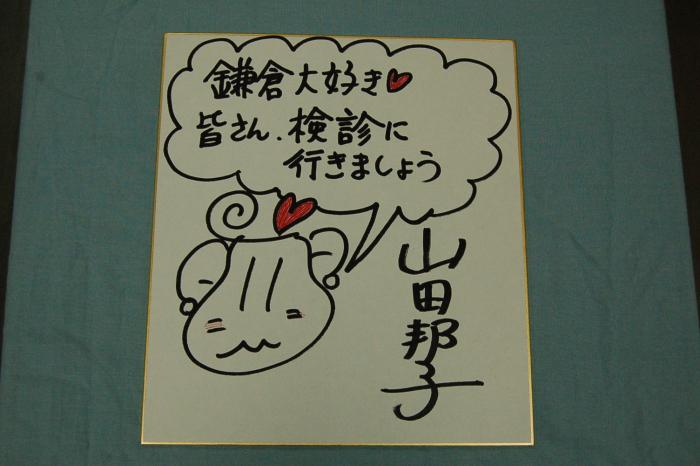 鎌倉大好き♥
皆さん、検診に
行きましょう
山田邦子